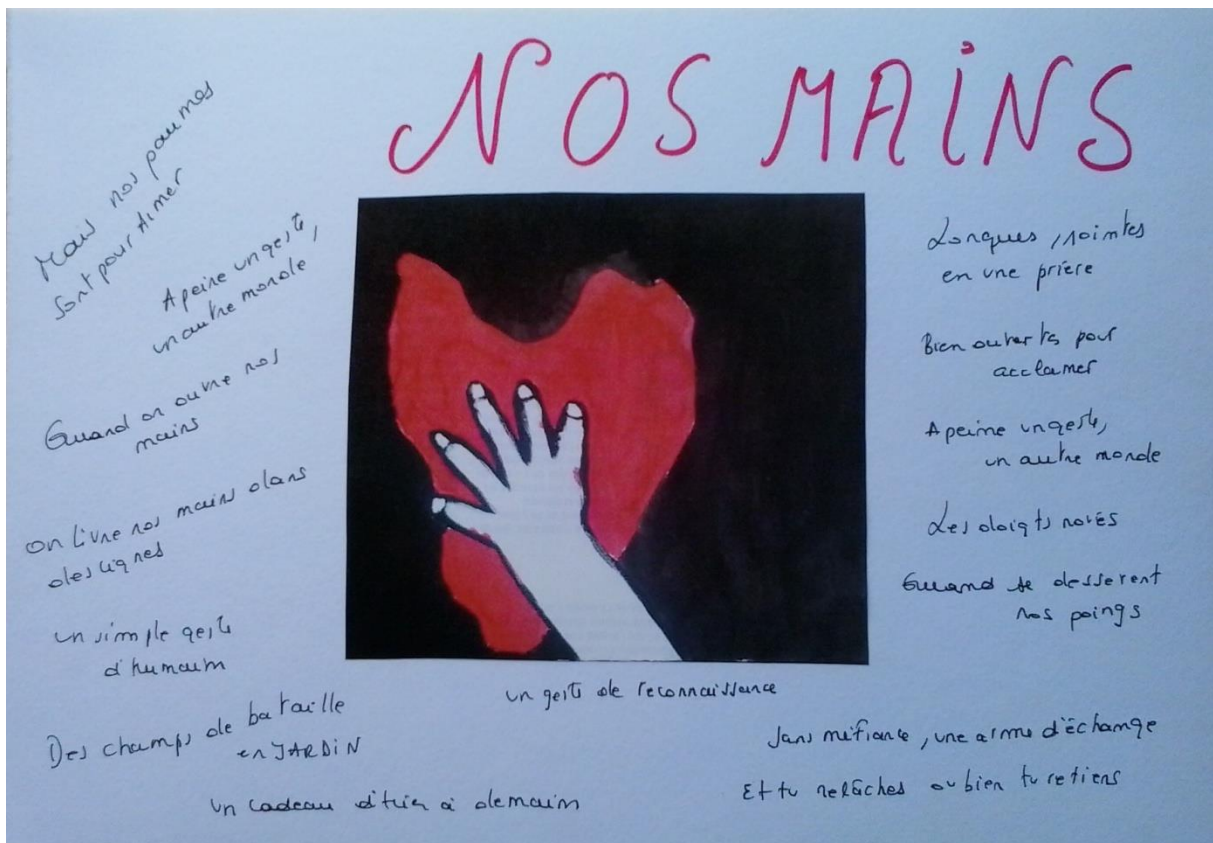 NOS MAINS
Mais nos paumes
sont pour Aimer
A peine un geste,
un autre monde
Quand on ouvre nos
mains
On livre nos mains dans
des lignes
Un simple geste
d'humain
Des champs de bataille
en JARDiN
Un cadeau d'hier à demain
Longues, jointes
en une prière
Bien ouvertes pour
acclamer
A peine un geste,
un autre monde
Les doigts noués
Quand se desserent
nos poings
un geste de reconnaissance
Sans méfiance, une arme d'échange
Et tu relâches ou bien tu retiens